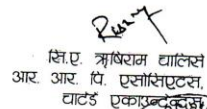 सि.ए. ऋषिराम घालिसे
आर. आर. पि. एसोसिएटस्,
चार्टर्ड एकाउन्टेन्ट्स